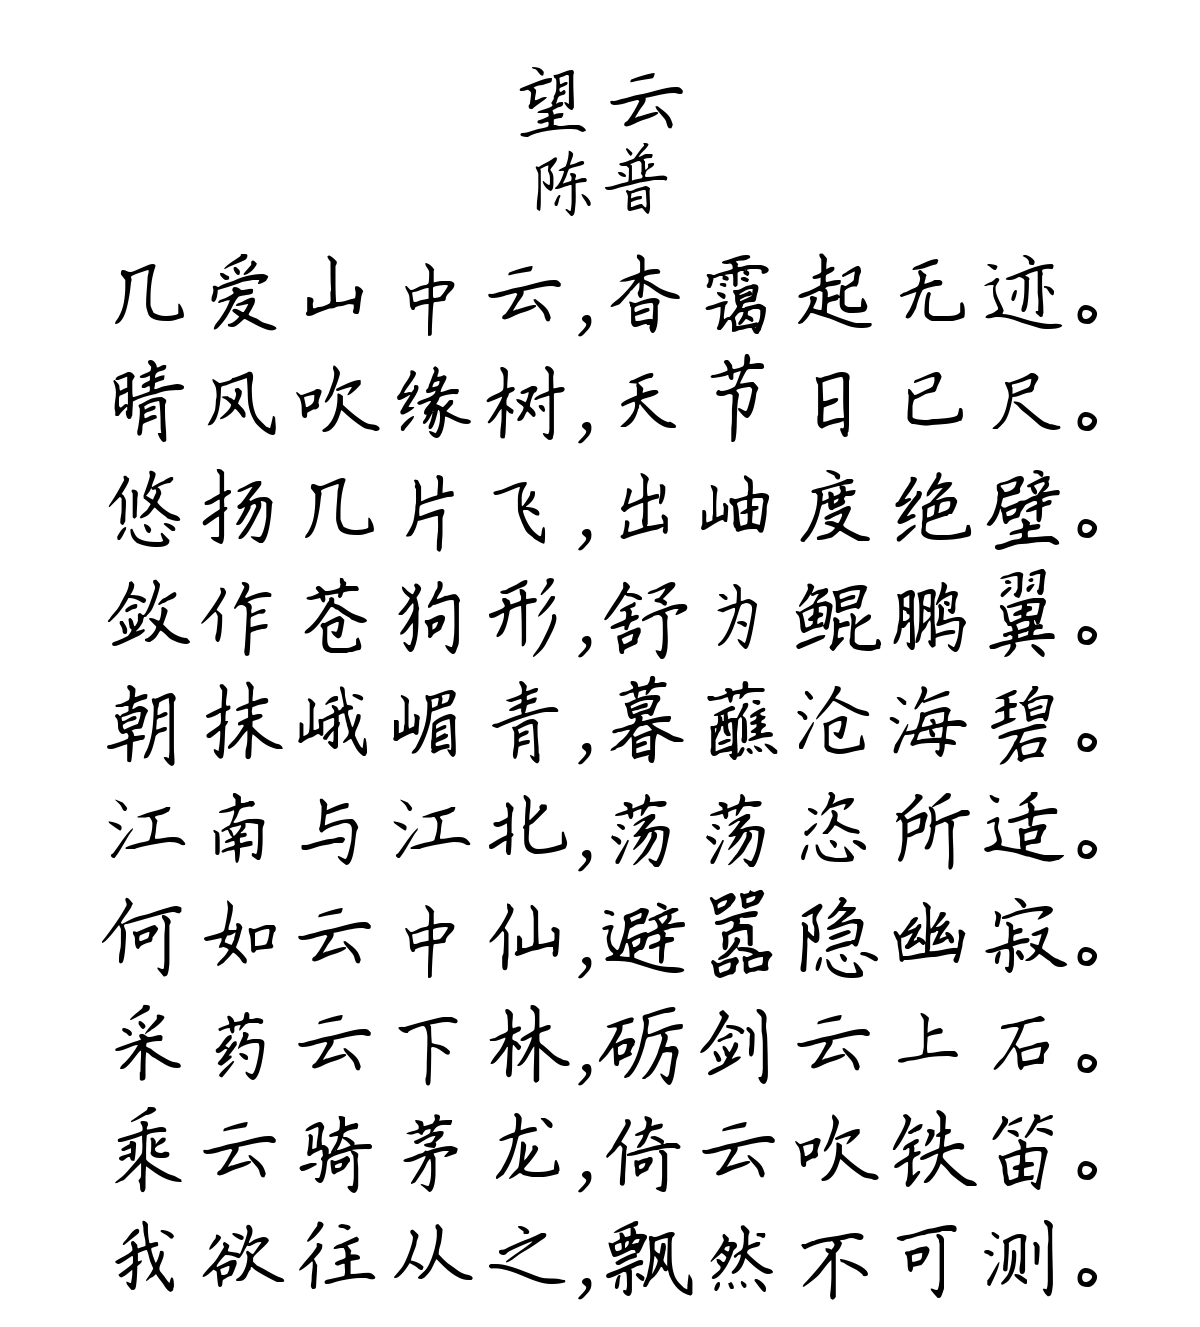 望云
陈普
几爱山中云,杳霭起无迹。
晴风吹缘树,天节日已尺。
悠扬几片飞,出岫度绝壁。
敛作苍狗形,舒为鲲鹏翼。
朝抹峨嵋青,暮蘸沧海碧。
江南与江北,荡荡恣所适。
何如云中仙,避嚣隐幽寂。
采药云下林,砺剑云上石。
乘云骑茅龙,倚云吹铁笛。
我欲往从之,飘然不可测。